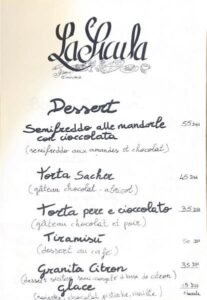 La Sicula
Dessert
Semifreddo alle mandorle 55 DH
col cioccolata
(semifreddo aux amandes et chocolat)
Torta Sacher 45 DH
(gâteau chocolat - abricot)
Torta pere e cioccolato 35 DH
(gâteau chocolat et poire)
Tiramisù DH
(dessert au café)
Granita Citron 35 DH
(dessert sicilien semi congelé à base de citron)
glace 15 DH
chocolat, pistache, vanille)